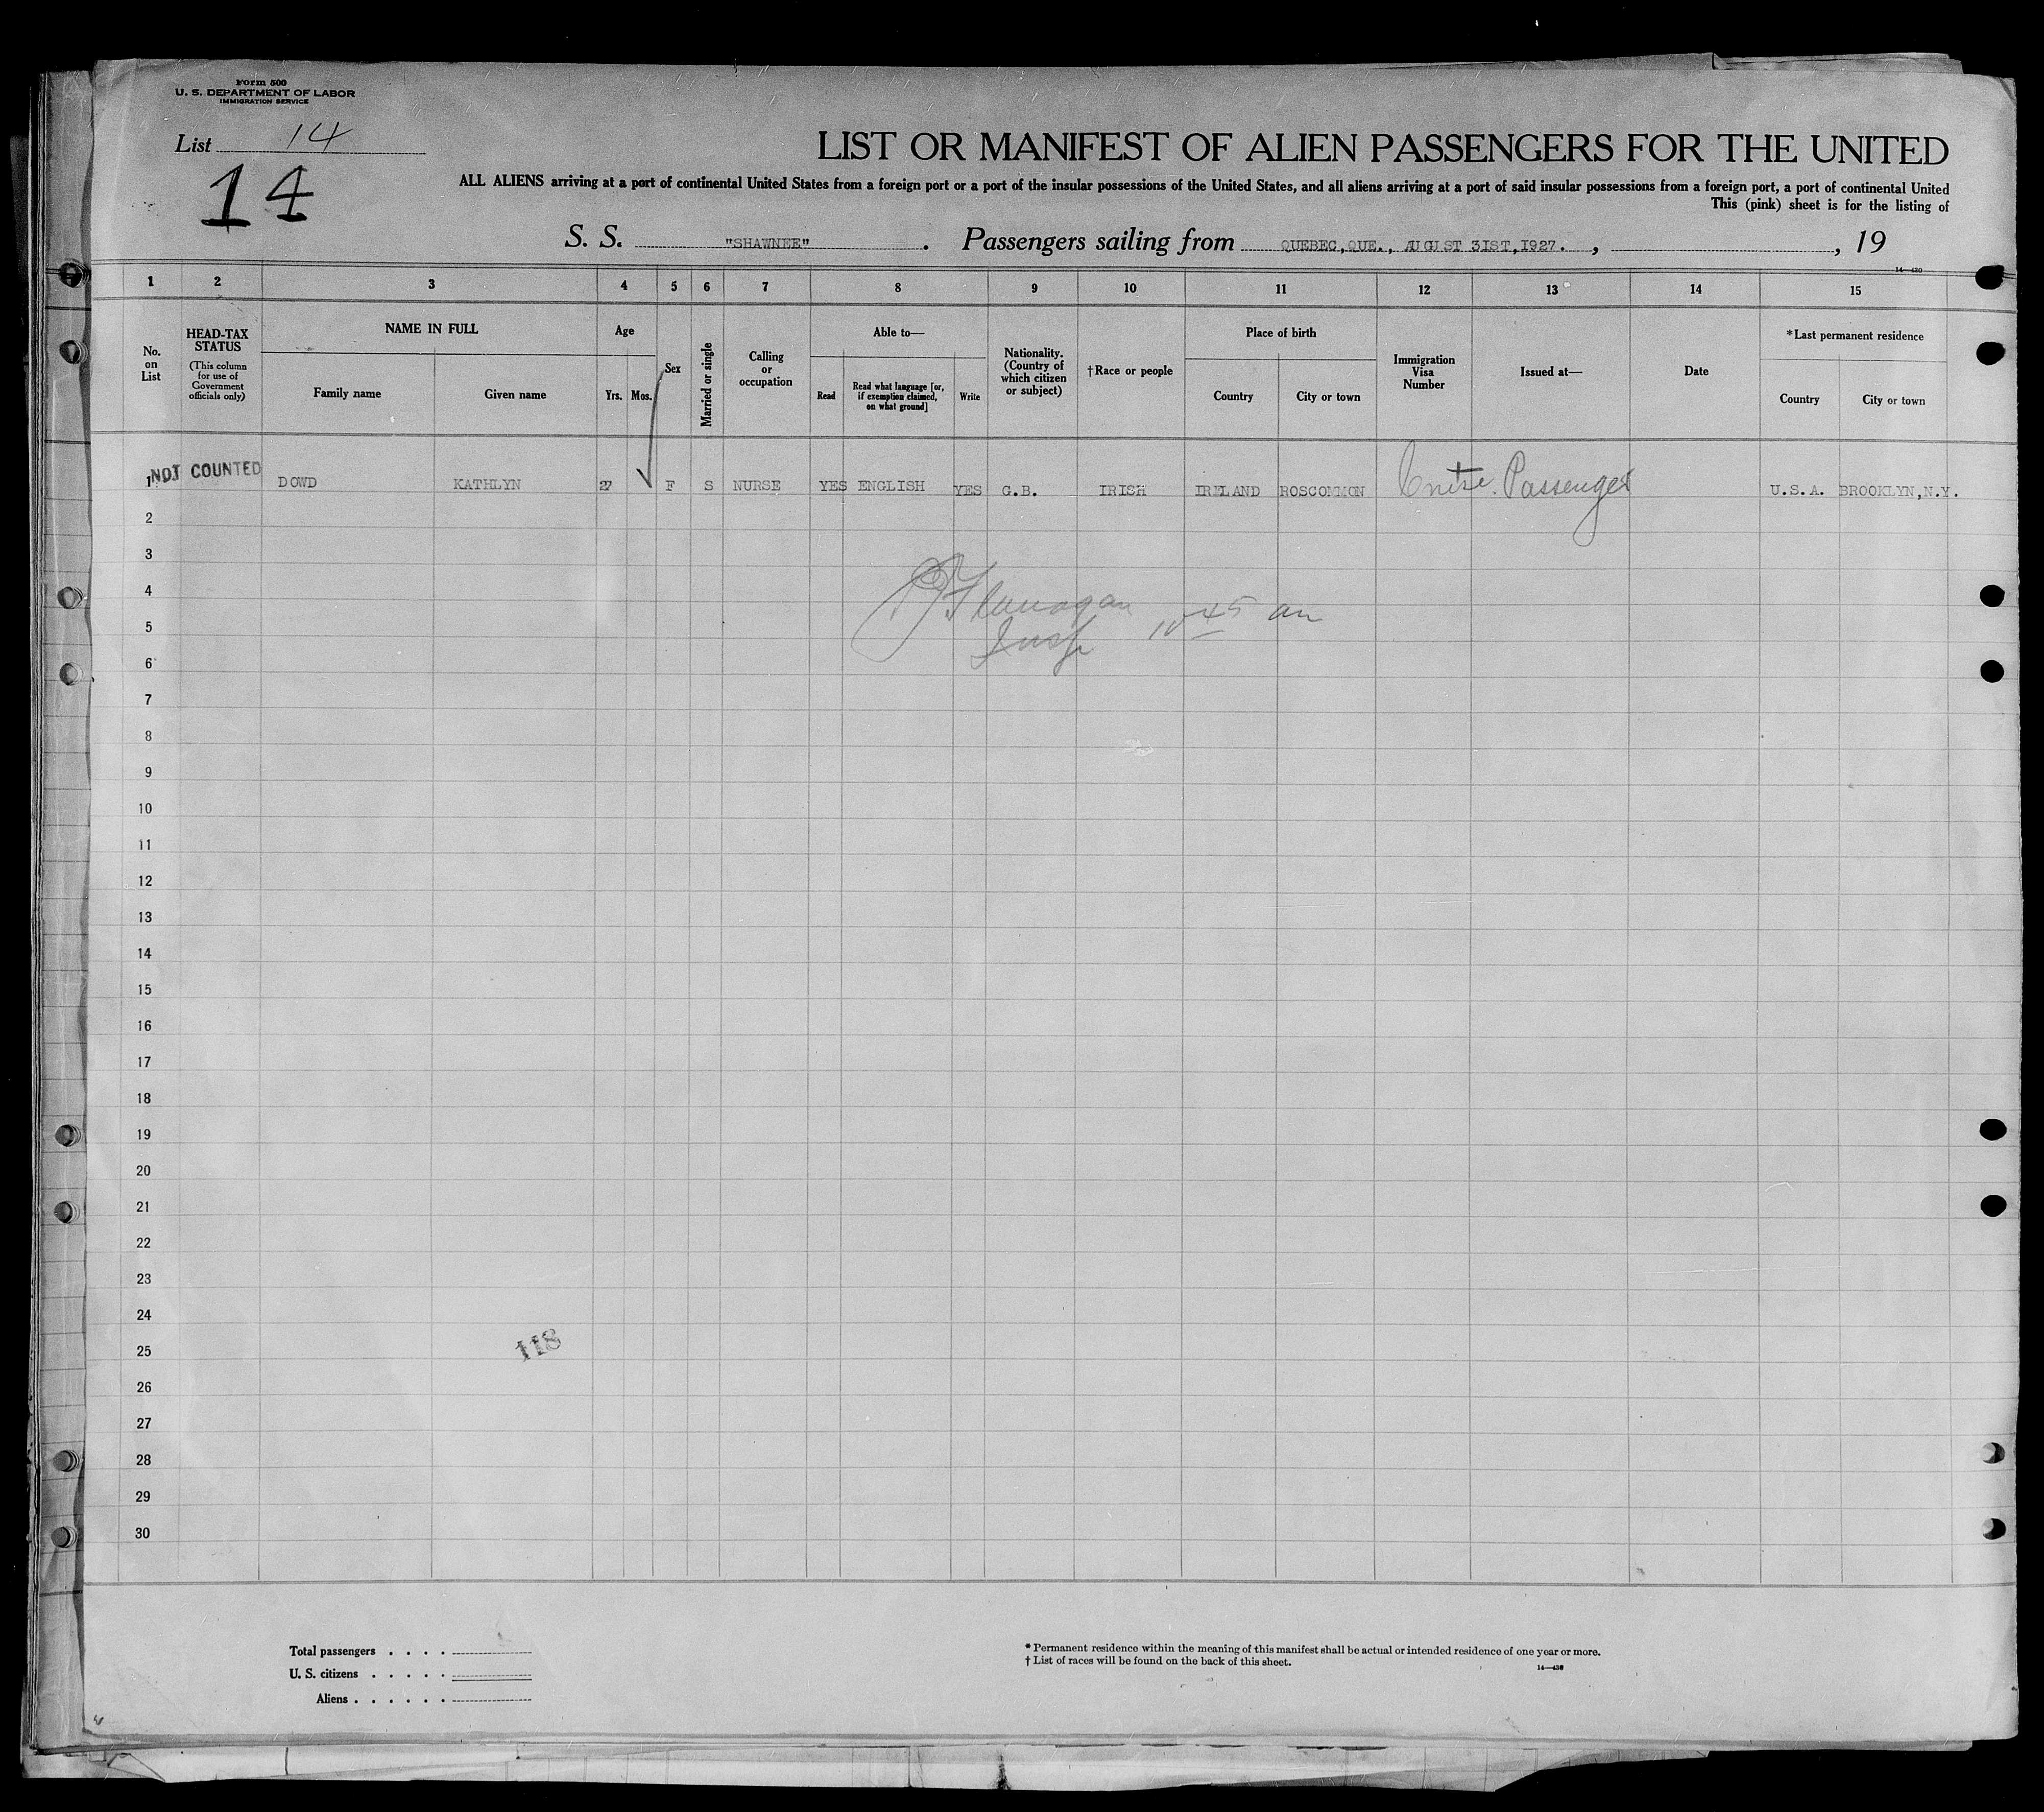 Form 500
U. S. DEPARTMENT OF LABOR
IMMIGRATION SERVICE
List 14
14
LIST OR MANIFEST OF ALIEN PASSENGERS FOR THE UNITED
ALL ALIENS arriving at a port of continental United States from a foreign port or a port of the insular possessions of the United States, and all aliens arriving at a port of said insular possessions from a foreign port, a port of continental United
This (pink) sheet is for the listing of
S. S. "SHAWNEE" . Passengers sailing from QUEBEC, QUE., AUGUST 31ST, 1927. , , 19
1 2 3 4 5 6 7 8 9 10 11 12 13 14 15
No. on List
HEAD-TAX STATUS
(This column for use of Government officials only)
NAME IN FULL
Family name
Given name
Age
Yrs.
Mos.
Sex
Married or single
Calling or occupation
Able to—
Read
Read what language [or, if exemption claimed, on what ground]
Write
Nationality. (Country of which citizen or subject)
†Race or people
Place of birth
Country
City or town
Immigration Visa Number
Issued at—
Date
*Last permanent residence
Country
City or town
1 NOT COUNTED DOWD KATHLYN 27 F S NURSE YES ENGLISH YES G.B. IRISH IRELAND ROSCOMMON Passenger U.S.A. BROOKLYN, N.Y.
2
3
4
Flanagan
Insp 10 45 am
5
6
7
8
9
10
11
12
13
14
15
16
17
18
19
20
21
22
23
24
118
25
26
27
28
29
30
Total passengers . . . .
U. S. citizens . . . . .
Aliens . . . . . .
* Permanent residence within the meaning of this manifest shall be actual or intended residence of one year or more.
† List of races will be found on the back of this sheet.